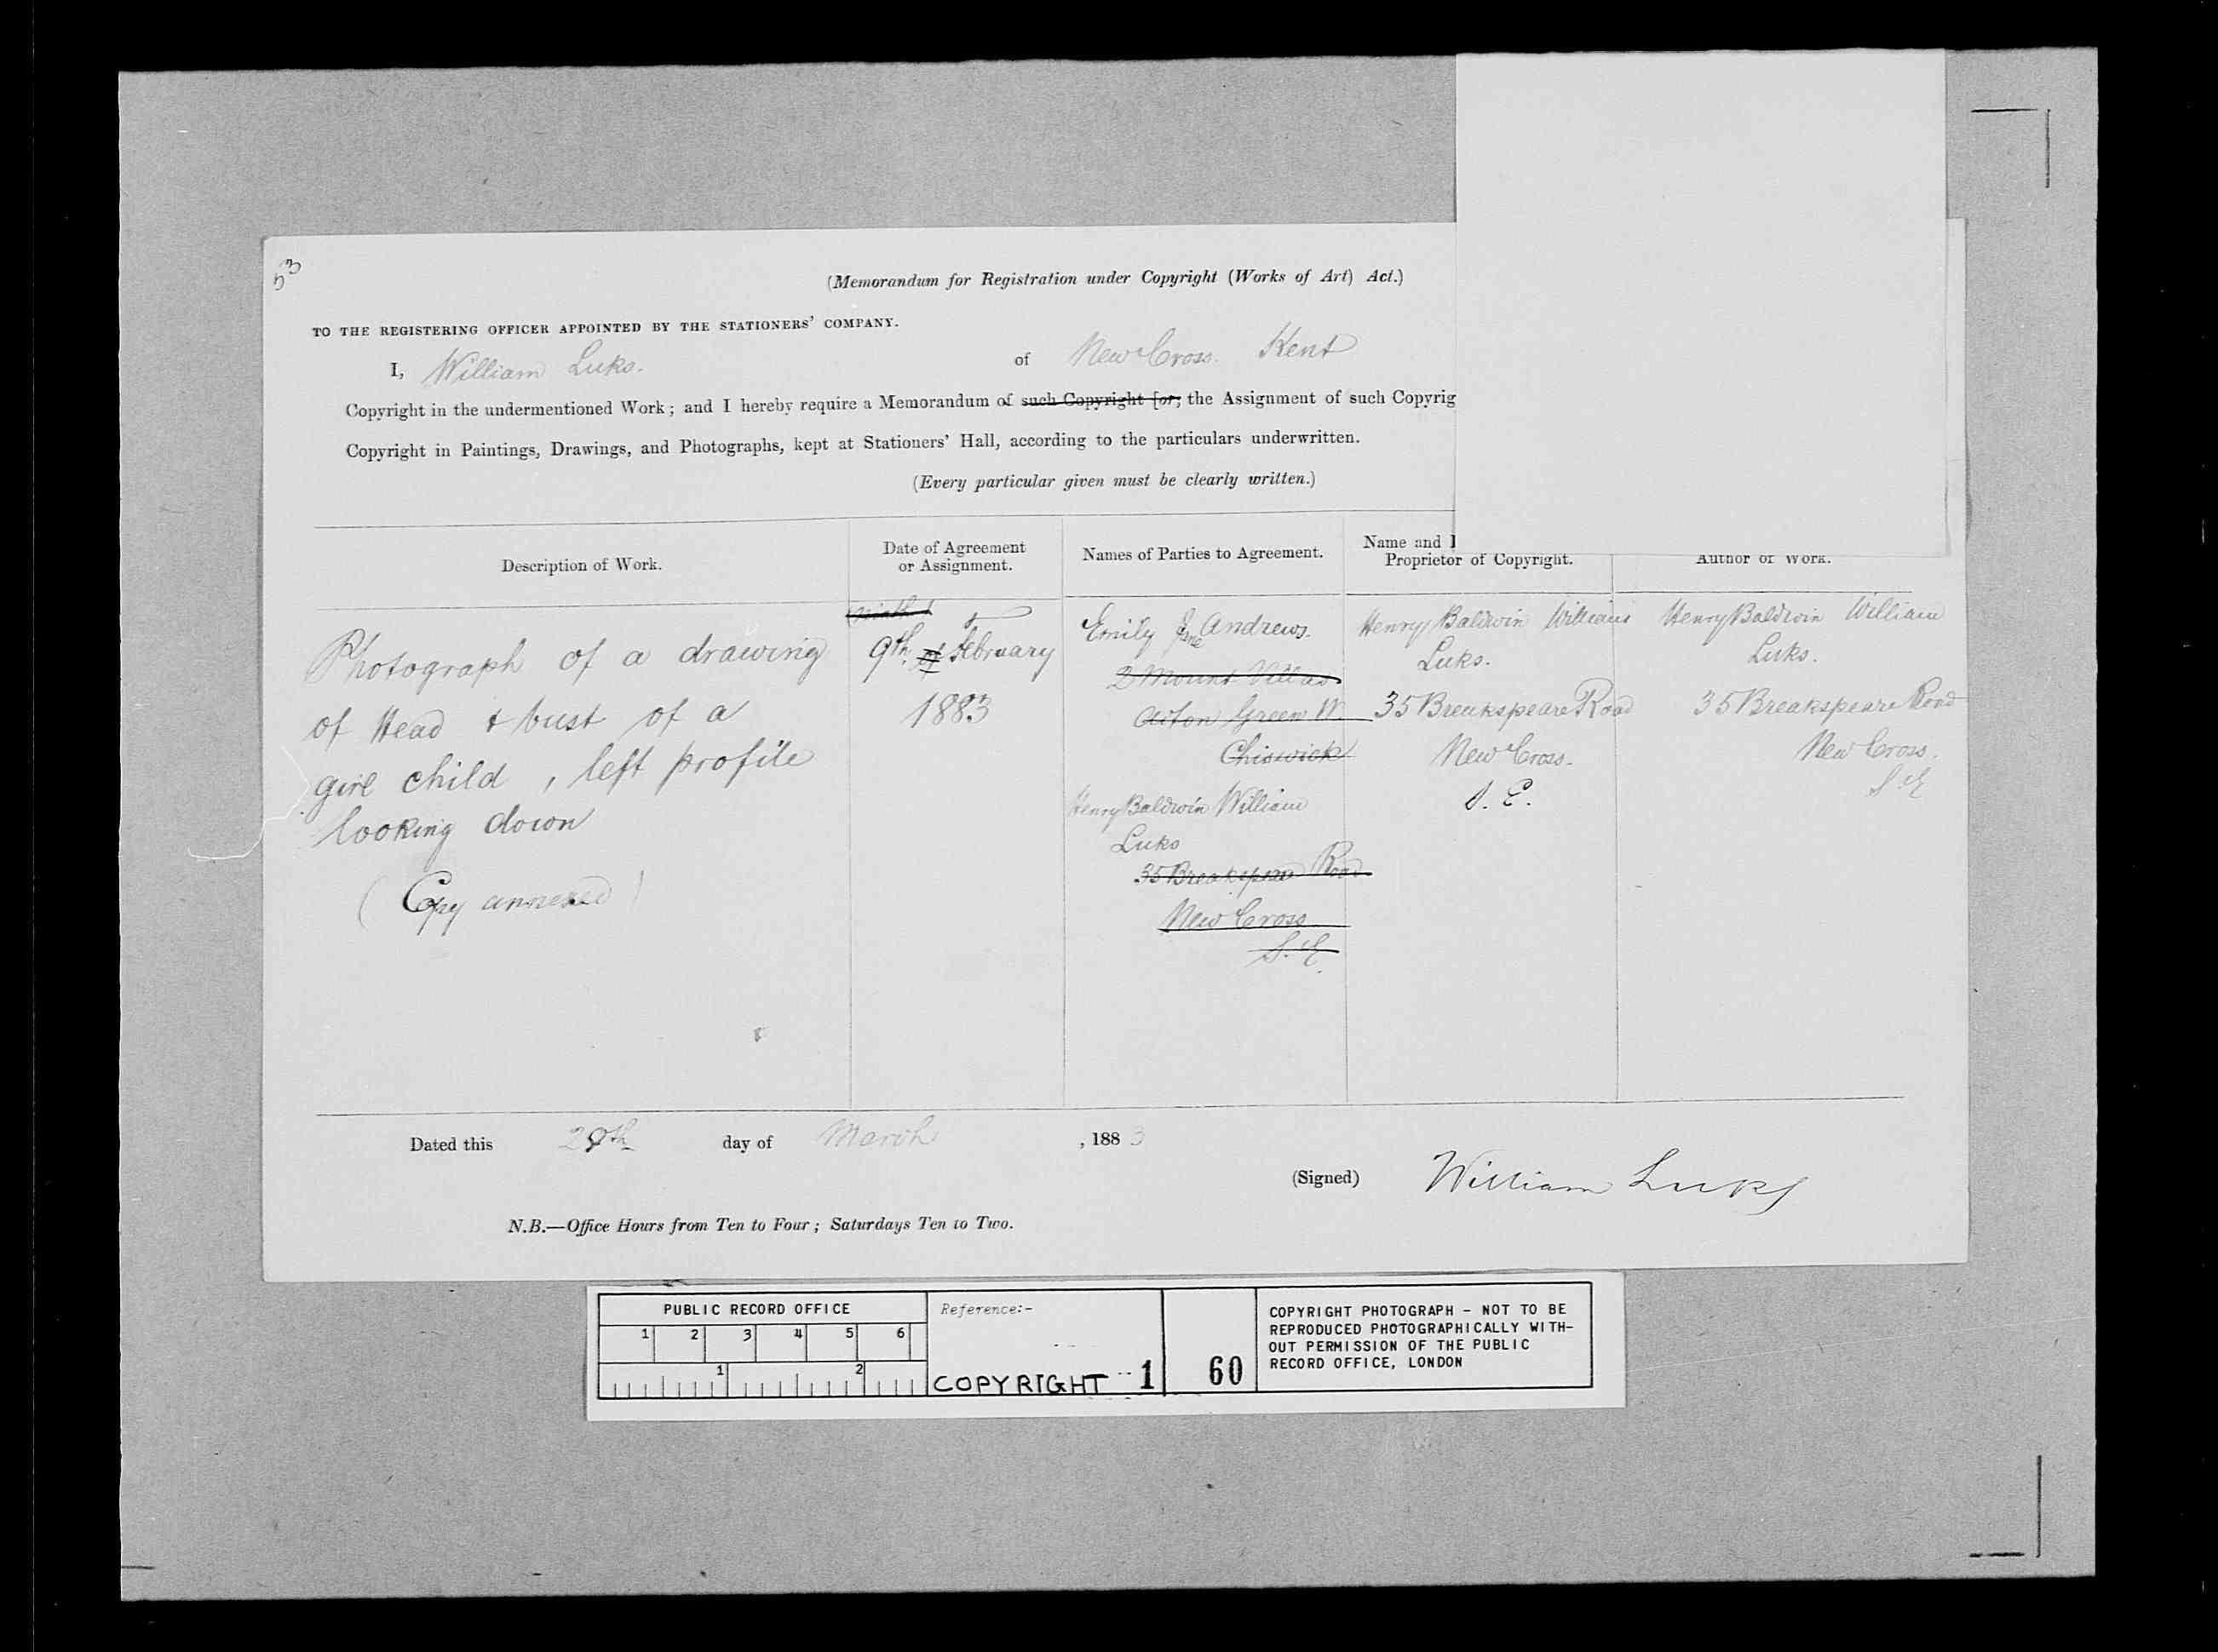 53
(Memorandum for Registration under Copyright (Works of Art) Act.)
TO THE REGISTERING OFFICER APPOINTED BY THE STATIONERS' COMPANY.
I, William Luks. of New Cross. Kent
Copyright in the undermentioned Work; and I hereby require a Memorandum of such Copyright [or, the Assignment of such Copyrig
Copyright in Paintings, Drawings, and Photographs, kept at Stationers' Hall, according to the particulars underwritten.
(Every particular given must be clearly written.)
Description of Work.
Date of Agreement
or Assignment.
Names of Parties to Agreement.
Name and
Proprietor of Copyright.
Author of Work.
Photograph of a drawing
of Head & bust of a
girl child, left profile
looking down
(Copy annexed)
9th of February
1883
Emily Jane Andrews.
2 Mount Villas
Acton Green W.
Chiswick
Henry Baldwin William
Luks
35 Breakspear Road
New Cross
S.E.
Henry Baldwin William
Luks.
35 Breakspeare Road
New Cross.
S.E.
Henry Baldwin William
Luks.
35 Breakspeare Road
New Cross.
S.E
Dated this 29th day of March, 1883
(Signed) William Luks
N.B.—Office Hours from Ten to Four; Saturdays Ten to Two.
PUBLIC RECORD OFFICE
1 2 3 4 5 6
1 2
Reference:-
COPYRIGHT 1
60
COPYRIGHT PHOTOGRAPH - NOT TO BE
REPRODUCED PHOTOGRAPHICALLY WITH-
OUT PERMISSION OF THE PUBLIC
RECORD OFFICE, LONDON